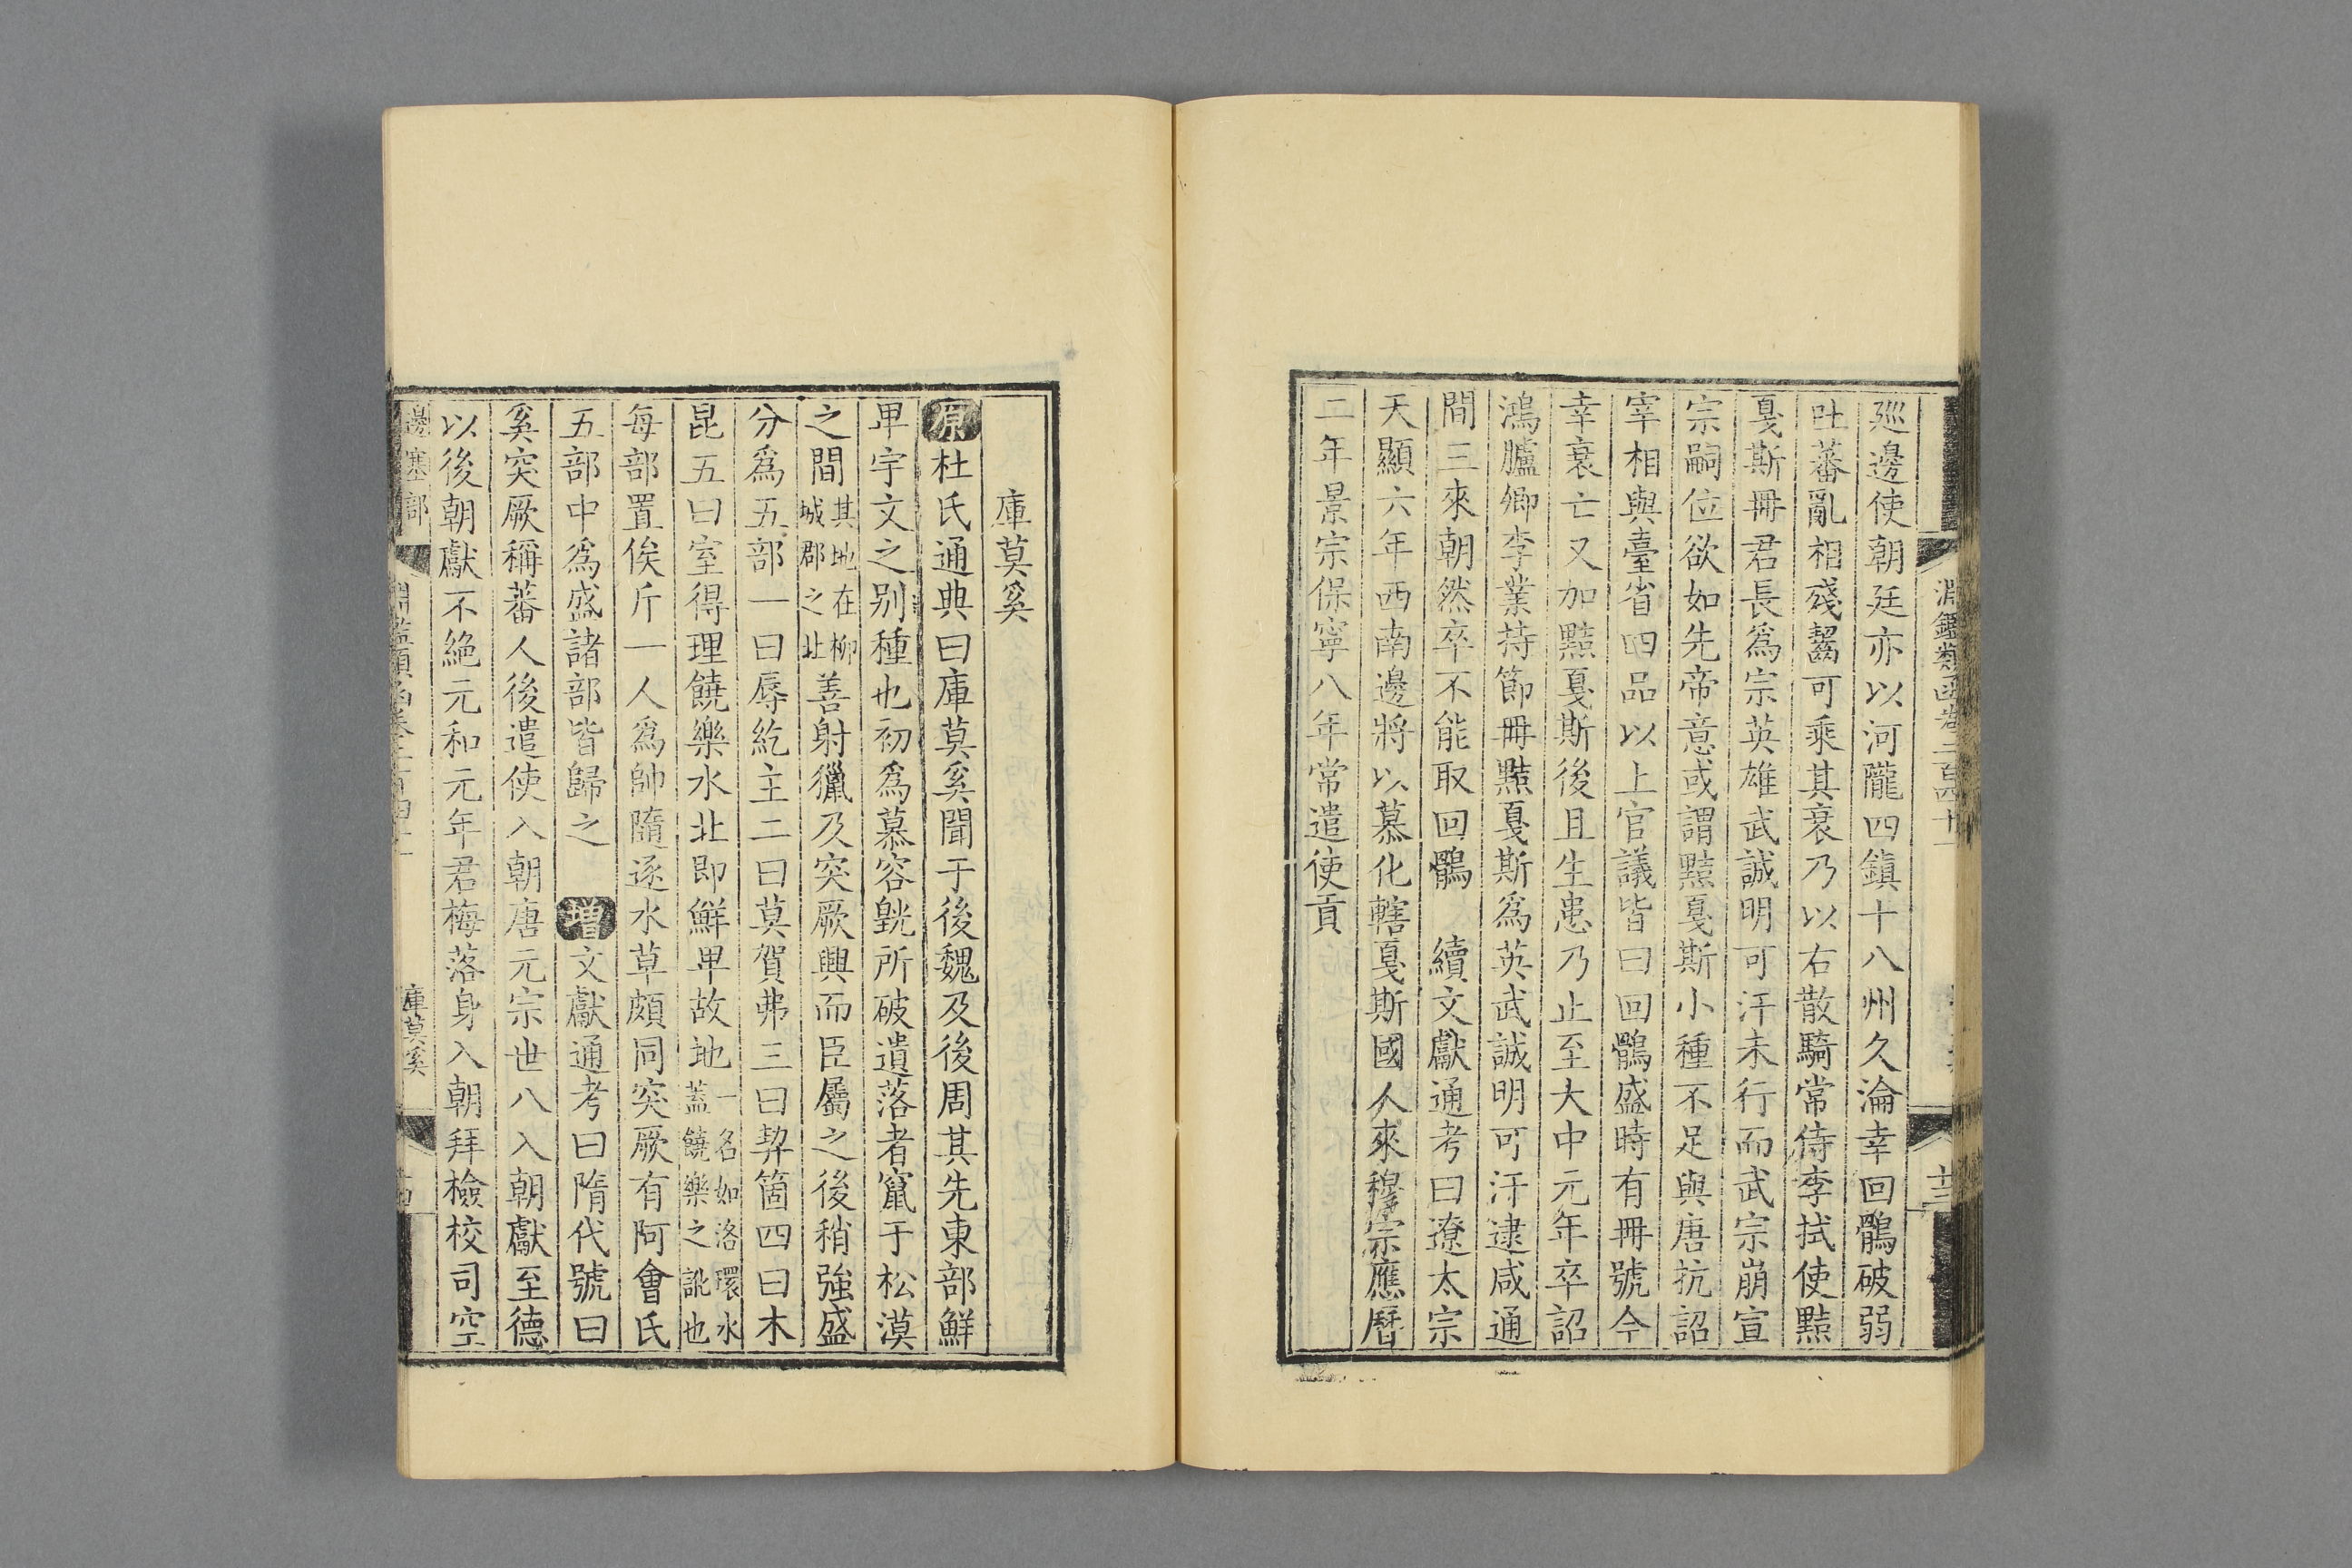 淵鑑類函卷二百四十一
十三
巡邊使朝廷亦以河隴四鎮十八州久淪幸回鶻破弱
吐蕃亂相殘齧可乘其衰乃以右散騎常侍李拭使黠
戛斯冊君長爲宗英雄武誠明可汗未行而武宗崩宣
宗嗣位欲如先帝意或謂黠戛斯小種不足與唐抗詔
宰相與臺省四品以上官議皆曰回鶻盛時有冊號今
幸衰亡又加黠戛斯後且生患乃止至大中元年卒詔
鴻臚卿李業持節冊黠戛斯爲英武誠明可汗逮咸通
間三來朝然卒不能取回鶻 續文獻通考曰遼太宗
天顯六年西南邊將以慕化轄戛斯國人來穆宗應曆
二年景宗保寧八年常遣使貢
庫莫奚
原杜氏通典曰庫莫奚聞于後魏及後周其先東部鮮
卑宇文之别種也初爲慕容皝所破遺落者竄于松漠
之間其地在柳城郡之北善射獵及突厥興而臣屬之後稍強盛
分爲五部一曰辱紇主二曰莫賀弗三曰契箇四曰木
昆五曰室得理饒樂水北即鮮卑故地一名如洛環水蓋饒樂之訛也
每部置俟斤一人爲帥隨逐水草頗同突厥有阿會氏
五部中爲盛諸部皆歸之 增文獻通考曰隋代號曰
奚突厥稱蕃人後遣使入朝唐元宗世八入朝獻至德
以後朝獻不絶元和元年君梅落身入朝拜檢校司空
邊塞部
淵鑑類函卷二百四十一
庫莫奚
十四